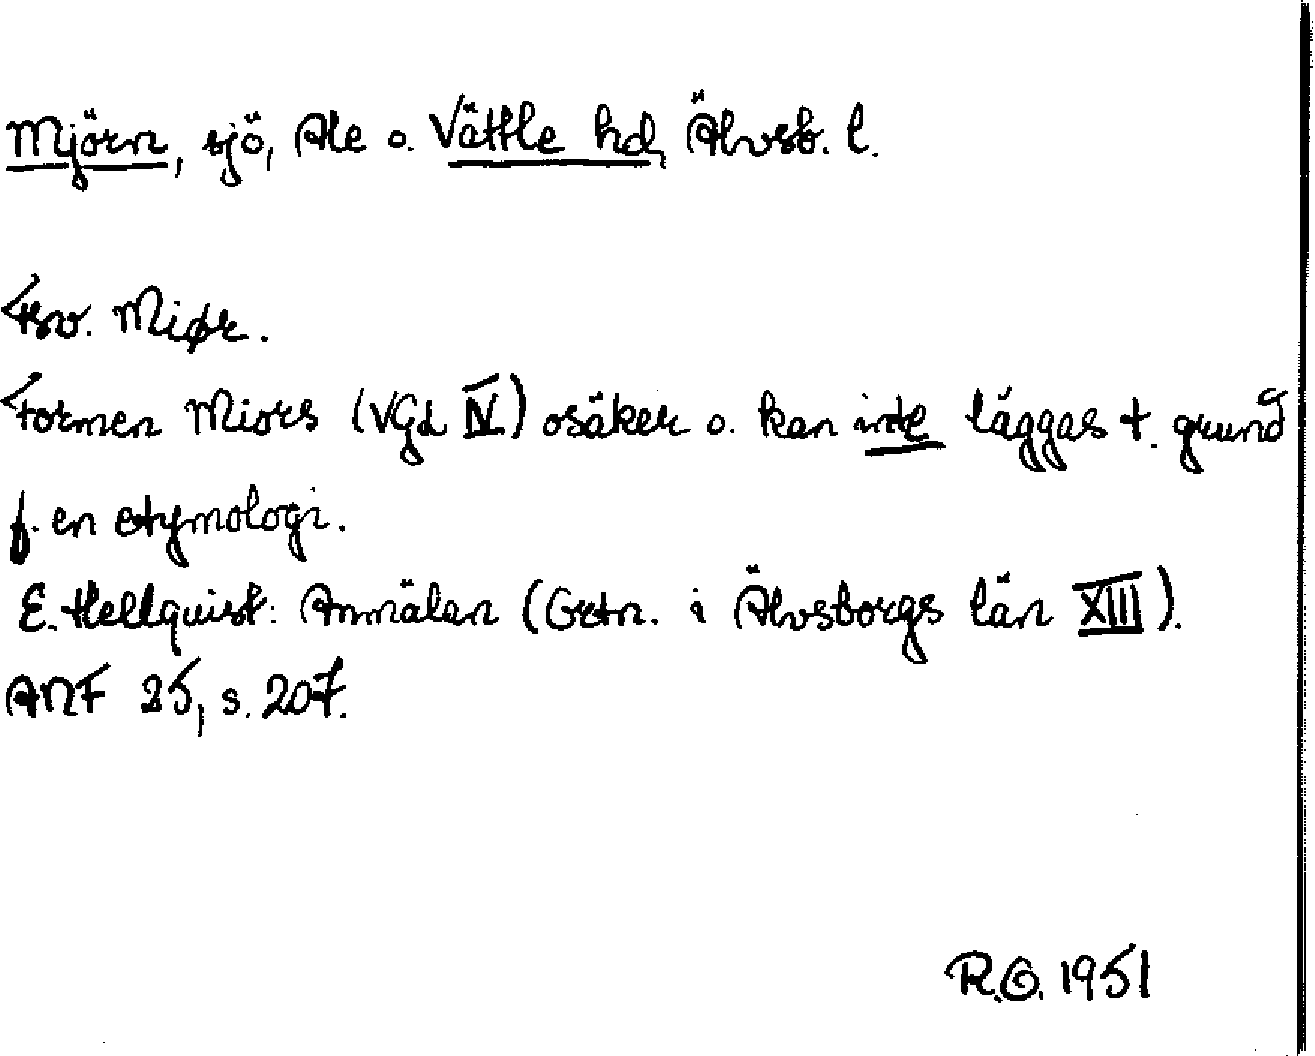 Mjörn, sjö, Ale o. Vättle hd, Älvsb. l.
Fsv. Miør.
Formen Miors (VGL IV) osäker o. kan inte läggas t. grund
f. en etymologi.
E. Hellquist: Anmälan (Ortn. i Älvsborgs län XIII).
ANF 25, s. 207.
R.O. 1951